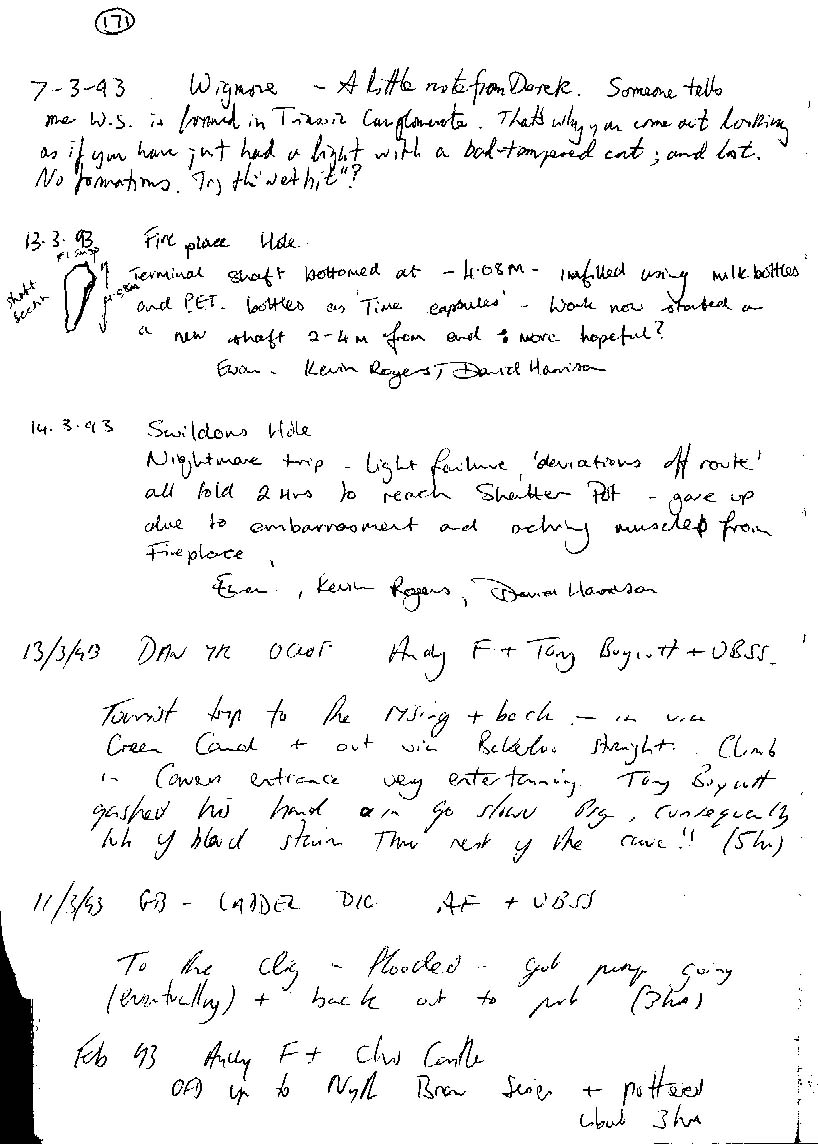 171
7-3-93 Wigmore - A little note from Derek. Someone tells
me W.S. is formed in Triassic Conglomerate. That's why you come out looking
as if you have just had a fight with a bad-tempered cat; and lost.
No formations. Try the "wet bit"?
13.3.93 Fire place Hole.
Terminal shaft bottomed at -4.08M - infilled using milk bottles
shaft
section
and PET. bottles as 'Time capsules' - Work now started on
a new shaft 2-4m from end : more hopeful?
Ewan. Kevin Rogers, David Harrison
14.3.93 Swildons Hole
Nightmare trip - light failure, 'deviations off route'
all told 2 Hrs to reach Shatter Pot - gave up
due to embarrasment and aching muscles from
Fireplace,
Ewan, Kevin Rogers, David Harrison
13/3/93 DAN YR OGOF Andy F + Tony Boycott + UBSS.
Tourist trip to the Rising + back - in via
Green Canal + out via straight. Climb
in Cowers entrance very entertaining. Tony Boycott
gashed his hand in Go slow , consequently
of blood stain Thru rest of the cave!! (5hr)
11/3/93 GB - LADDER DIG AF + UBSS
To the dig - flooded - got pump going
(eventually) + back out to pub (3hrs)
Feb 93 Andy F + Chris Castle
OFD up to Nyth Bran Series + pottered
about 3hrs